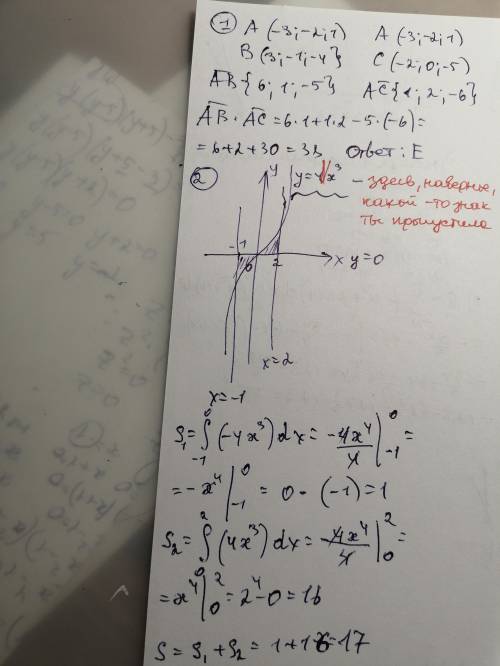 ① A (-3; -2; 1)   A (-3; -2; 1)
B (3; -1; -4}   C (-2; 0; -5)
AB {6; 1; -5}   AC {1; 2; -6}
AB · AC = 6·1+1·2-5·(-6)=
= 6+2+30 = 38   Ответ: E
②
y
y=4x³
- здесь, наверные,
какой-то знак
ты прыпустила
-1
0
2
x
y=0
x=2
x=-1
S₁=∫₋₁⁰(-4x³)dx= -4x⁴/4 |₋₁⁰=
=-x⁴|₋₁⁰ = 0-(-1)=1
S₂=∫₀²(4x³)dx= 4x⁴/4 |₀²=
=x⁴|₀²=2⁴-0=16
S= S₁+S₂= 1+16=17